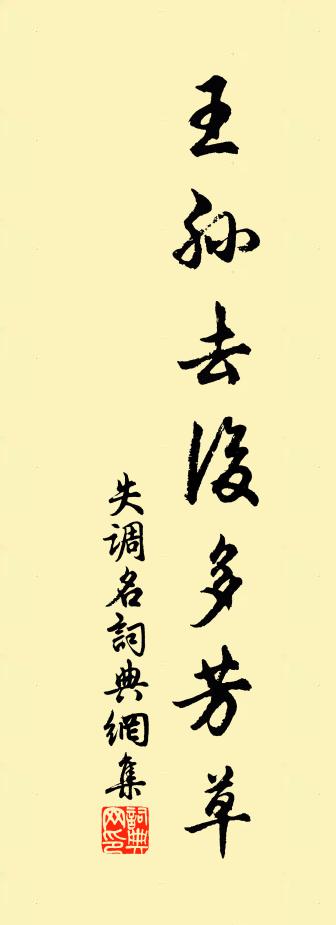 王孙去後多芳草
失调名詞典網集
詞典网印